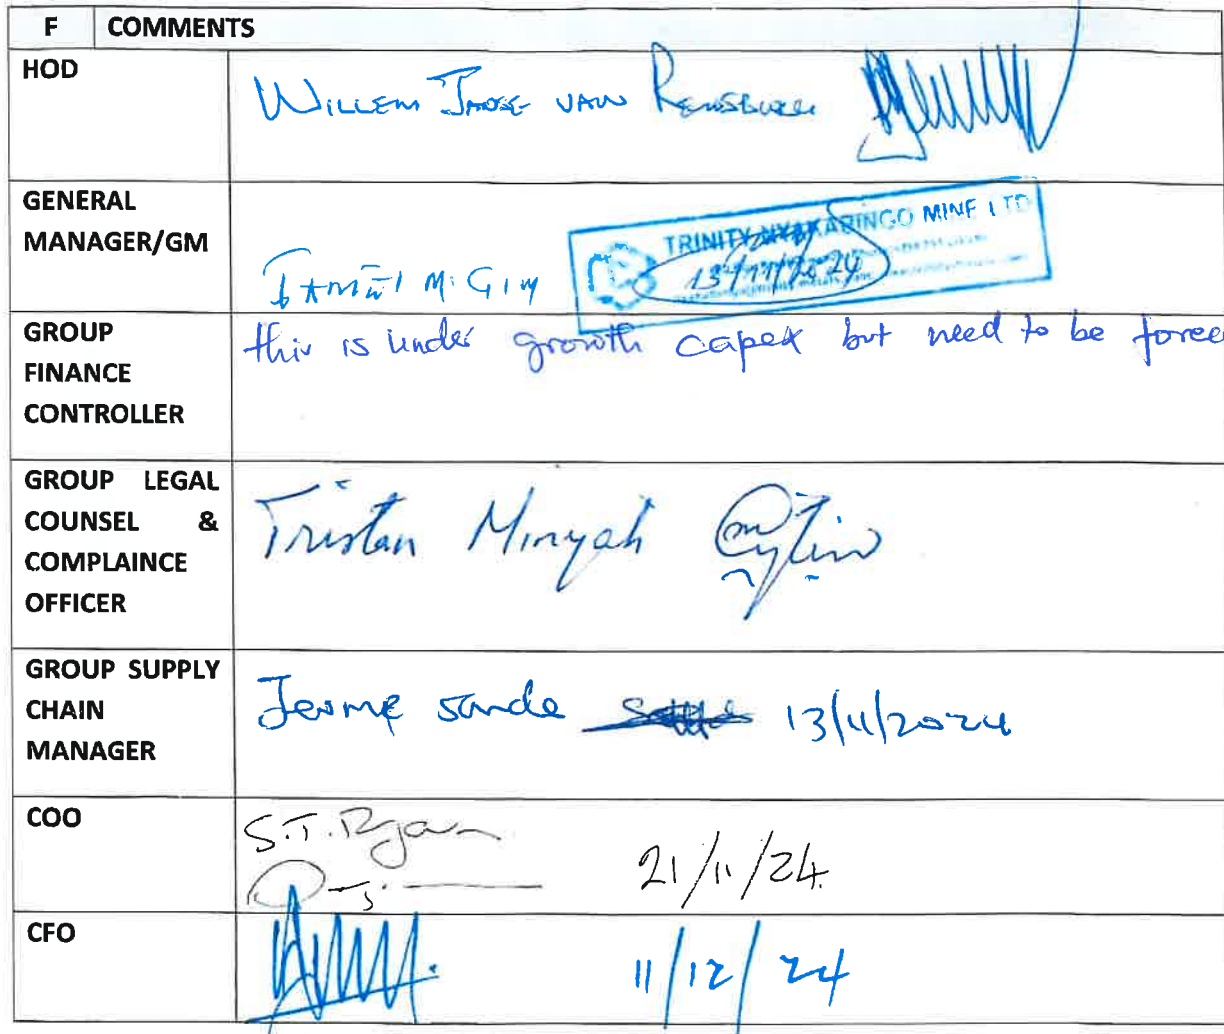 F COMMENTS
HOD
WILLEM JANSE VAN RENSBURG
GENERAL
MANAGER/GM
TRINITY NYAKABINGO MINE LTD
13/11/2024
GROUP
FINANCE
CONTROLLER
this is under growth capex but need to be
GROUP LEGAL
COUNSEL &
COMPLAINCE
OFFICER
Tristan Minyah
GROUP SUPPLY
CHAIN
MANAGER
sande 13/11/2024
COO
S.T. Ryan
21/11/24
CFO
11/12/24